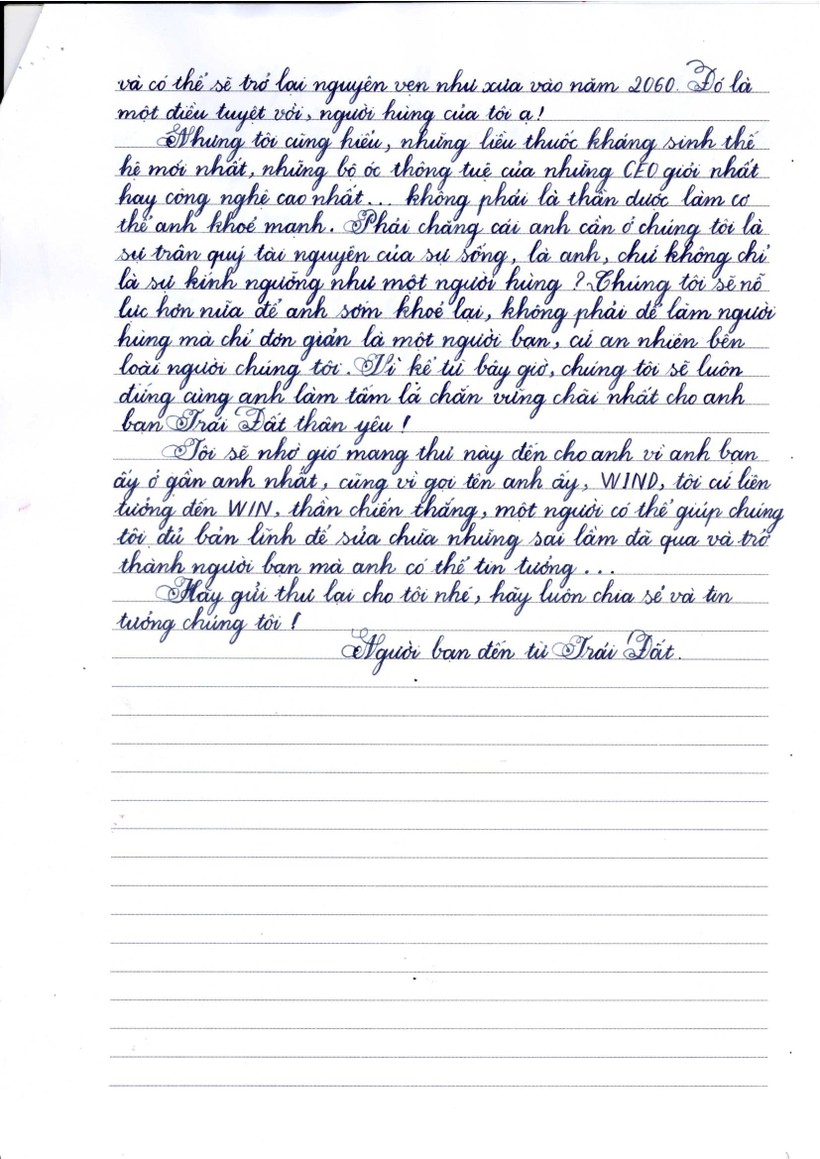 và có thể sẽ trở lại nguyên vẹn như xưa vào năm 2060. Đó là
một điều tuyệt vời, người hùng của tôi ạ!
Nhưng tôi cũng hiểu, những liều thuốc kháng sinh thế
hệ mới nhất, những bộ óc thông tuệ của những CEO giỏi nhất
hay công nghệ cao nhất... không phải là thần dược làm cơ
thể anh khoẻ mạnh. Phải chăng cái anh cần ở chúng tôi là
sự trân quý tài nguyên của sự sống, là anh, chứ không chỉ
là sự kính ngưỡng như một người hùng? Chúng tôi sẽ nỗ
lực hơn nữa để anh sớm khoẻ lại, không phải để làm người
hùng mà chỉ đơn giản là một người bạn, cứ an nhiên bên
loài người chúng tôi. Vì kể từ bây giờ, chúng tôi sẽ luôn
đứng cùng anh làm tấm lá chắn vững chãi nhất cho anh
bạn Trái Đất thân yêu!
Tôi sẽ nhờ gió mang thư này đến cho anh vì anh bạn
ấy ở gần anh nhất, cũng vì gọi tên anh ấy, WIND, tôi cứ liên
tưởng đến WIN, thần chiến thắng, một người có thể giúp chúng
tôi đủ bản lĩnh để sửa chữa những sai lầm đã qua và trở
thành người bạn mà anh có thể tin tưởng...
Hãy gửi thư lại cho tôi nhé, hãy luôn chia sẻ và tin
tưởng chúng tôi!
Người bạn đến từ Trái Đất.